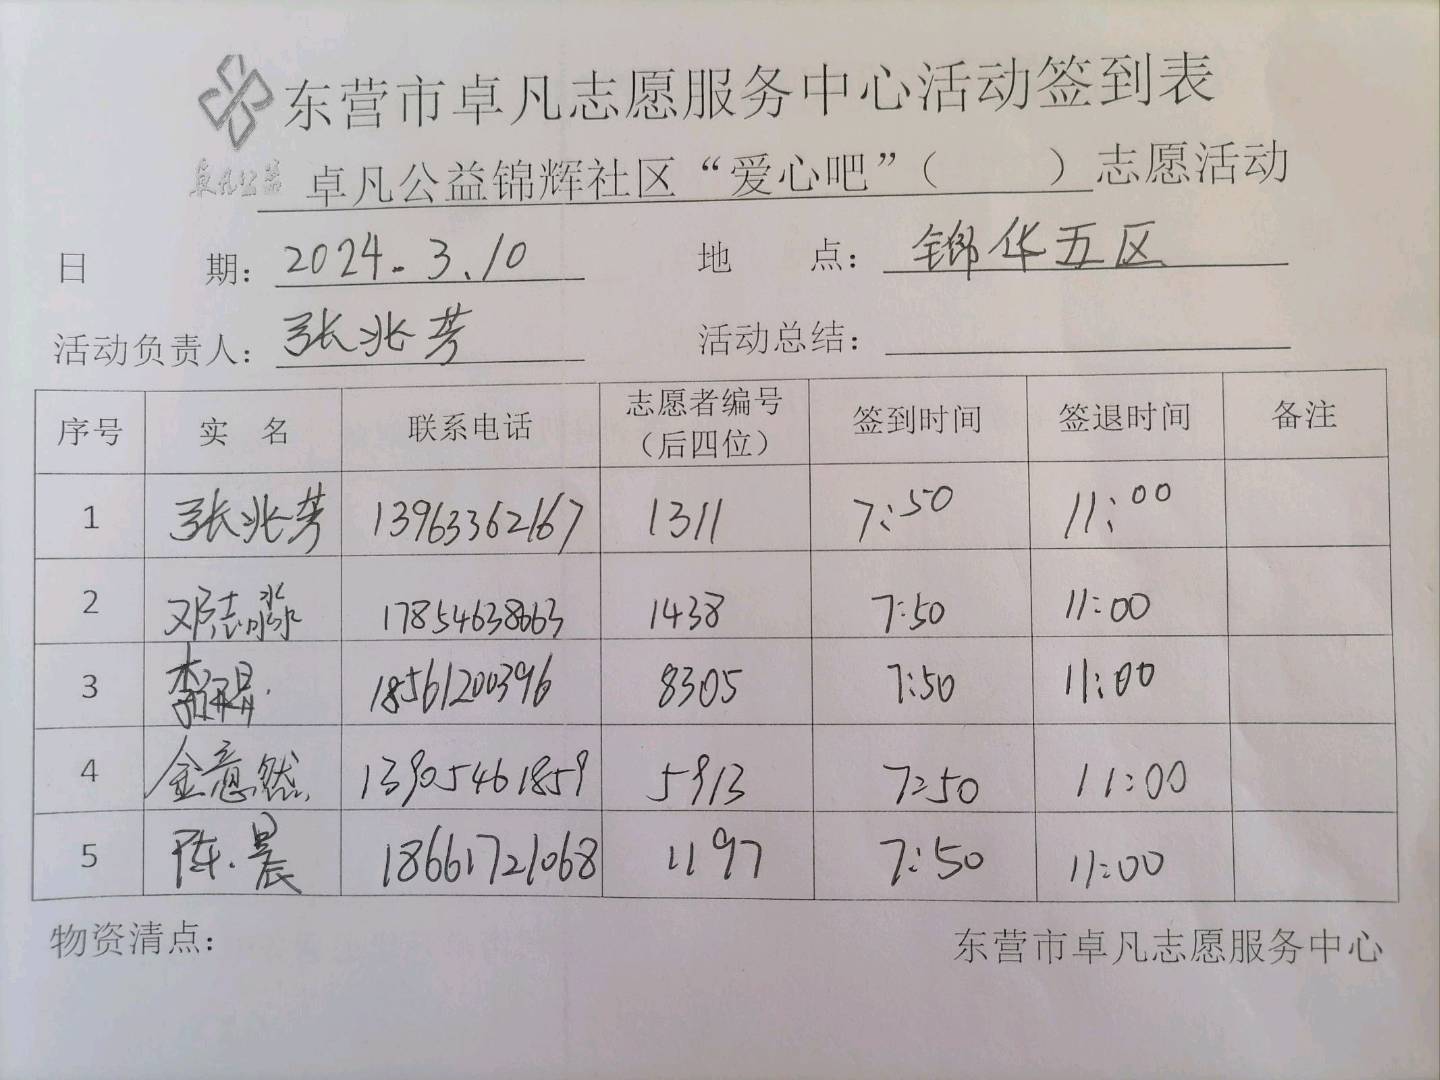 东营市卓凡志愿服务中心活动签到表
卓凡公益
卓凡公益锦辉社区“爱心吧”（ ）志愿活动
日 期：2024.3.10 地 点：锦华五区
活动负责人：张兆芳 活动总结：
序号 实 名 联系电话 志愿者编号（后四位） 签到时间 签退时间 备注
1 张兆芳 13963362167 1311 7:50 11:00
2 邓志淼 17854638663 1438 7:50 11:00
3 李 18561200396 8305 7:50 11:00
4 金意然 13905461859 5913 7:50 11:00
5 陈晨 18661721068 1197 7:50 11:00
物资清点： 东营市卓凡志愿服务中心